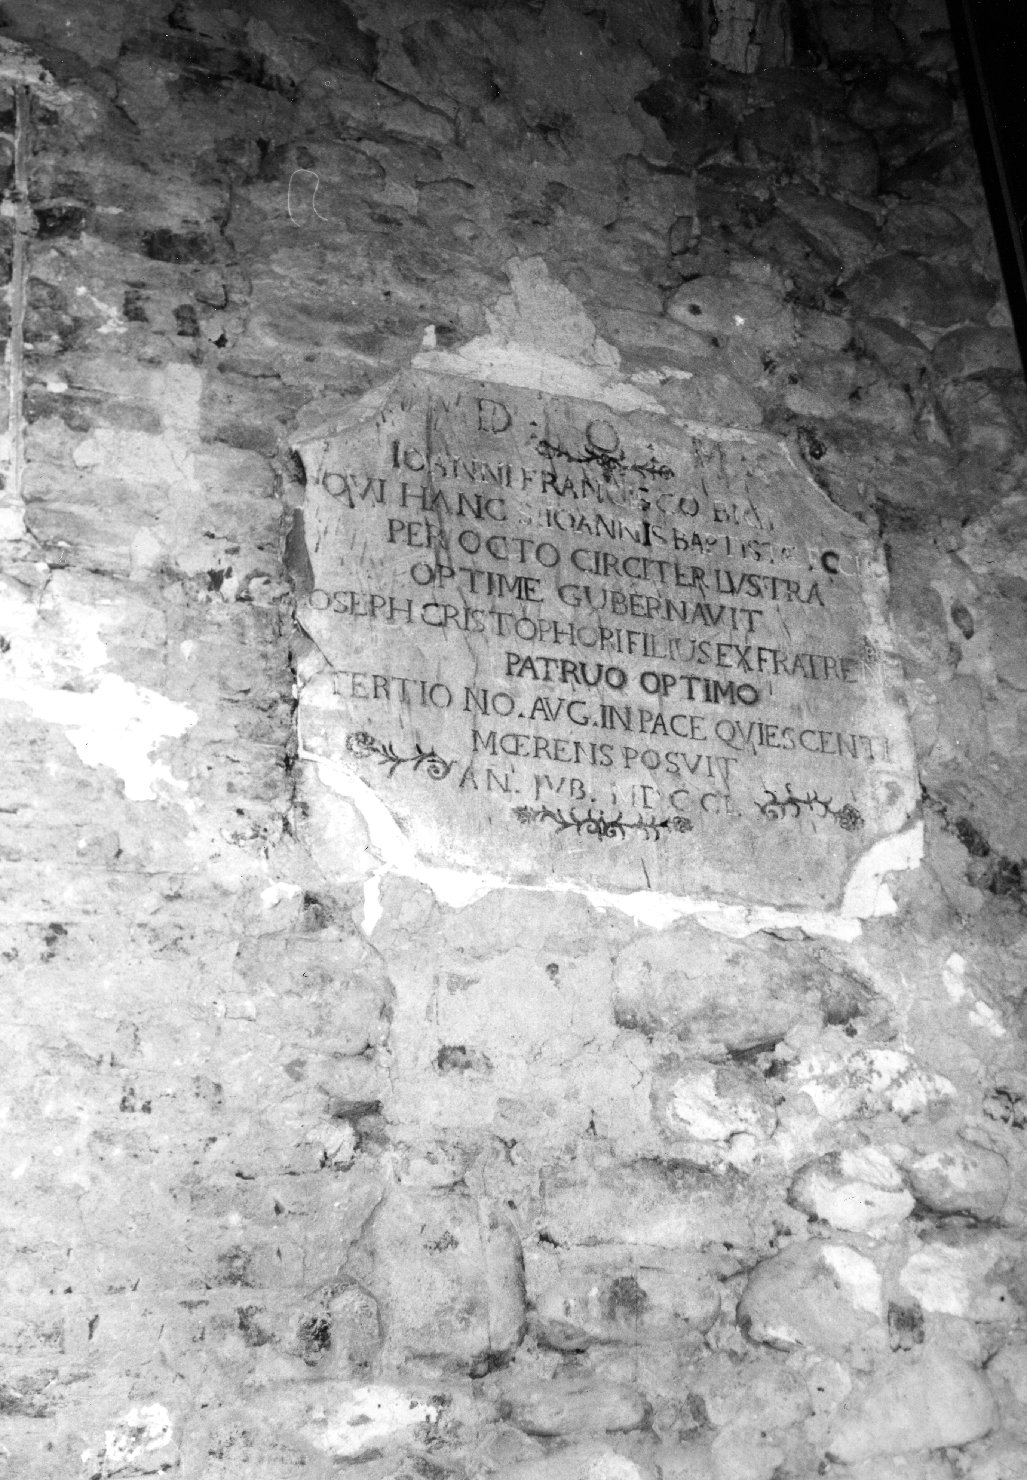 D. O. M.
IOANNI FRANCISCO
QVI HANC S. IOANNIS BAPTISTÆ
PER OCTO CIRCITER LVSTRA
OPTIME GUBERNAVIT
IOSEPH CRISTOPHORI FILIUS EX FRATRE
PATRUO OPTIMO
TERTIO NO. AVG. IN PACE QUIESCENTI
MŒRENS POSVIT
AN. JVB. MDCCL